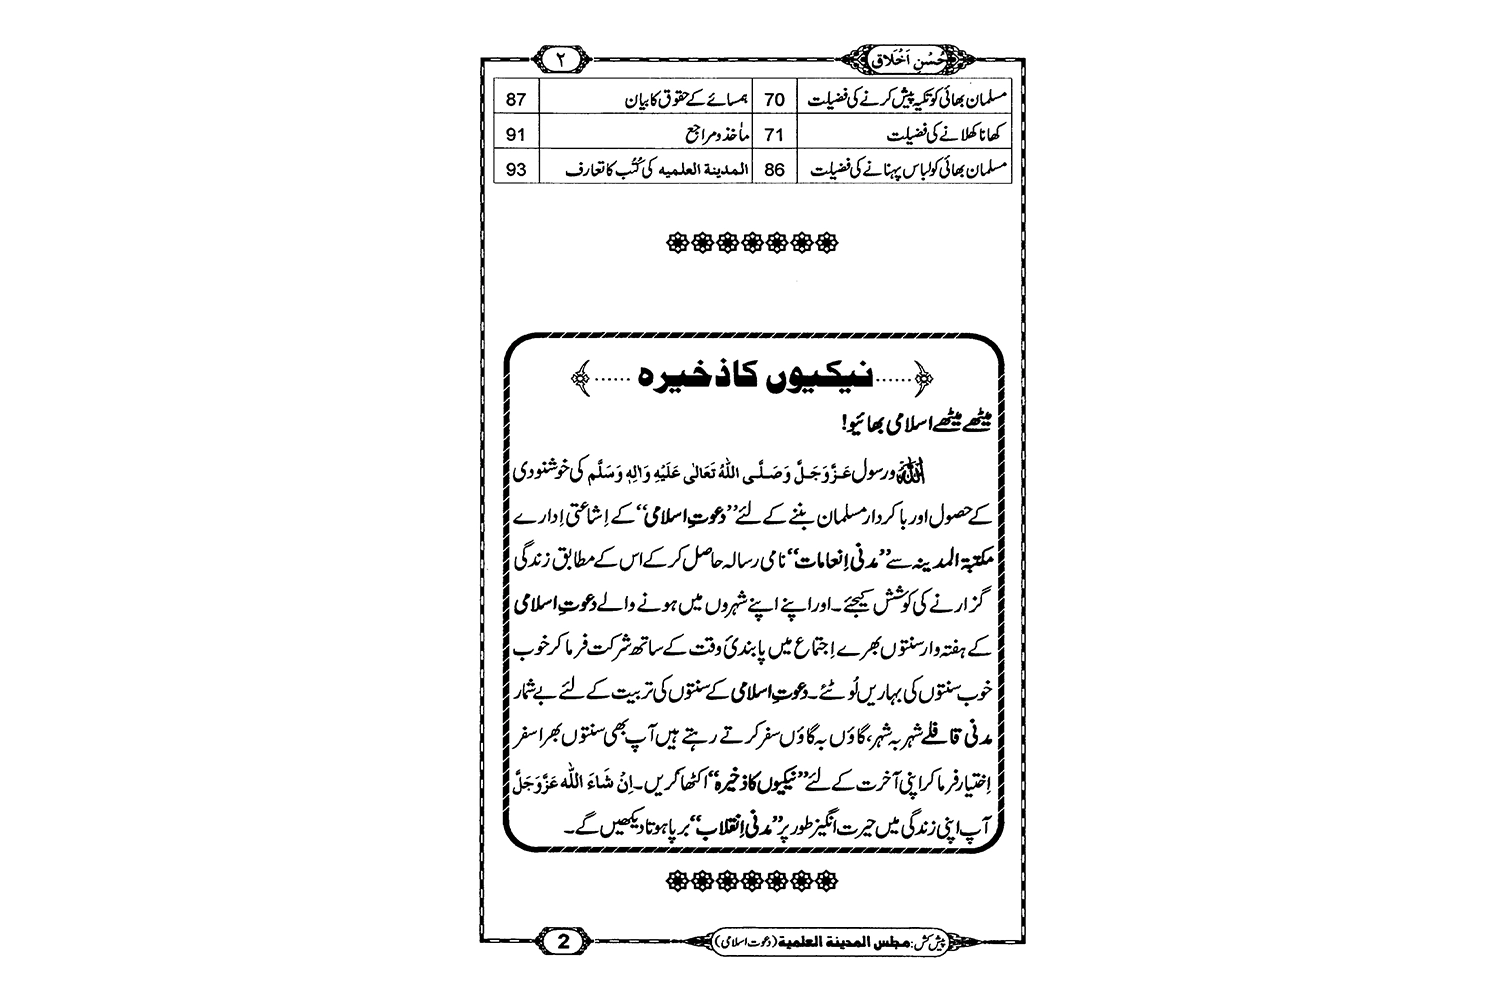 حُسْنِ اَخْلَاق ۲
مسلمان بھائی کو تکیہ پیش کرنے کی فضیلت 70 ہمسائے کے حقوق کا بیان 87
کھانا کھلانے کی فضیلت 71 مأخذ و مراجع 91
مسلمان بھائی کو لباس پہنانے کی فضیلت 86 المدینة العلمیه کی کُتُب کا تعارف 93
......نیکیوں کا ذخیرہ......
میٹھے میٹھے اسلامی بھائیو!
اللہ و رسول عَزَّوَجَلَّ وَصَلَّی اللہُ تَعَالٰی عَلَیْہِ وَاٰلِہٖ وَسَلَّم کی خوشنودی
کے حصول اور باکردار مسلمان بننے کے لئے ”دعوتِ اسلامی“ کے اِشاعتی اِدارے
مکتبۃ المدینہ سے ”مدنی اِنعامات“ نامی رسالہ حاصل کر کے اس کے مطابق زندگی
گزارنے کی کوشش کیجئے۔ اور اپنے اپنے شہروں میں ہونے والے دعوتِ اسلامی
کے ہفتہ وار سنتوں بھرے اِجتماع میں پابندیٔ وقت کے ساتھ شرکت فرما کر خوب
خوب سنتوں کی بہاریں لُوٹئے۔ دعوتِ اسلامی کے سنتوں کی تربیت کے لئے بے شمار
مدنی قافلے شہر بہ شہر، گاؤں بہ گاؤں سفر کرتے رہتے ہیں آپ بھی سنتوں بھرا سفر
اِختیار فرما کر اپنی آخرت کے لئے ”نیکیوں کا ذخیرہ“ اکٹھا کریں۔ اِنْ شَاءَ اللہ عَزَّوَجَلَّ
آپ اپنی زندگی میں حیرت انگیز طور پر ”مدنی اِنقلاب“ برپا ہوتا دیکھیں گے۔
پیش کش: مجلس المدینة العلمیة (دعوت اسلامی) 2